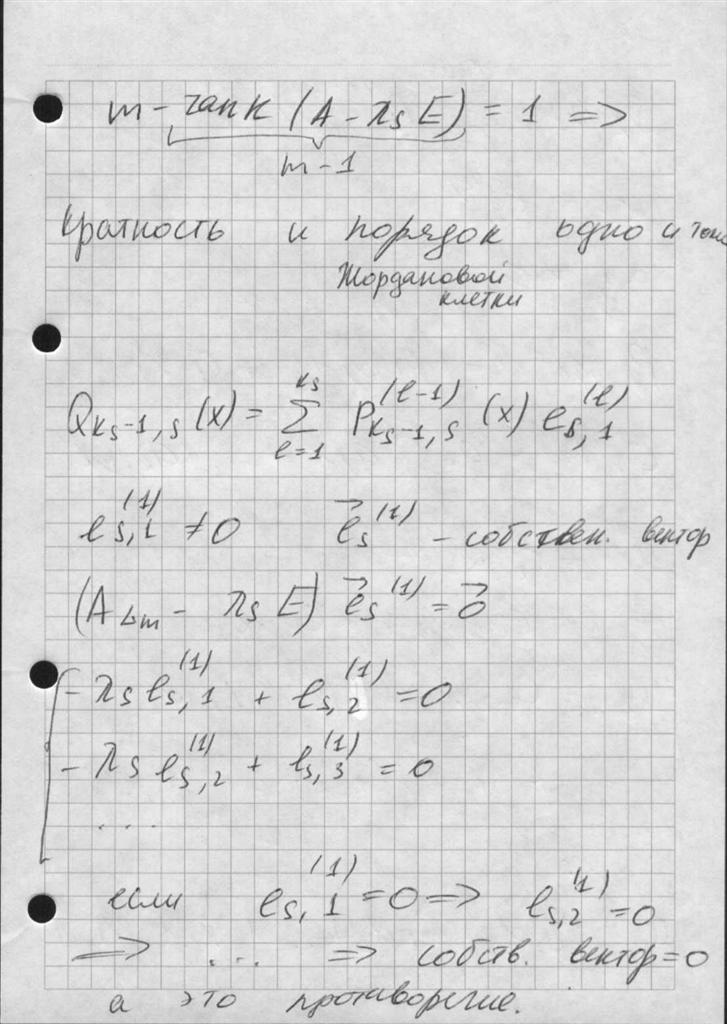 m - rank (A - λ_S E) = 1 =>
m - 1
кратность и порядок одно и то
Жордановой
клетки
Q_{k_S-1,S}(x) = \sum_{l=1}^{k_S} P_{k_S-1,S}^{(l-1)}(x) e_{S,1}^{(l)}
e_{S,1}^{(1)} ≠ 0 \vec{e}_S^{(1)} - собствен. вектор
(A_{Δm} - λ_S E) \vec{e}_S^{(1)} = \vec{0}
- λ_S e_{S,1}^{(1)} + e_{S,2}^{(1)} = 0
- λ_S e_{S,2}^{(1)} + e_{S,3}^{(1)} = 0
...
если e_{S,1}^{(1)} = 0 => e_{S,2}^{(1)} = 0
=> ... => собств. вектор = 0
а это противоречие.